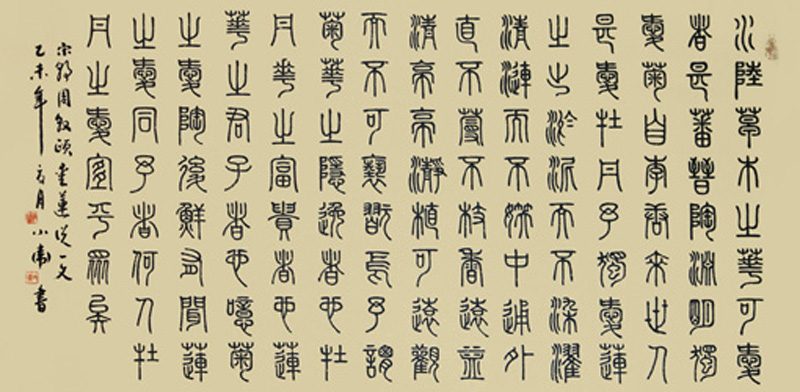 水陸草木之華可愛
者甚蕃晉陶淵明獨
愛菊自李唐來世人
甚愛牡丹予獨愛蓮
之出淤泥而不染濯
清漣而不妖中通外
直不蔓不枝香遠益
清亭亭瀞植可遠觀
而不可褻翫焉予謂
菊華之隱逸者也牡
丹華之富貴者也蓮
華之君子者也噫菊
之愛陶後鮮有聞蓮
之愛同予者何人牡
丹之愛宜乎眾矣
宋朝周敦頤愛蓮說一文
乙未年夏月小書